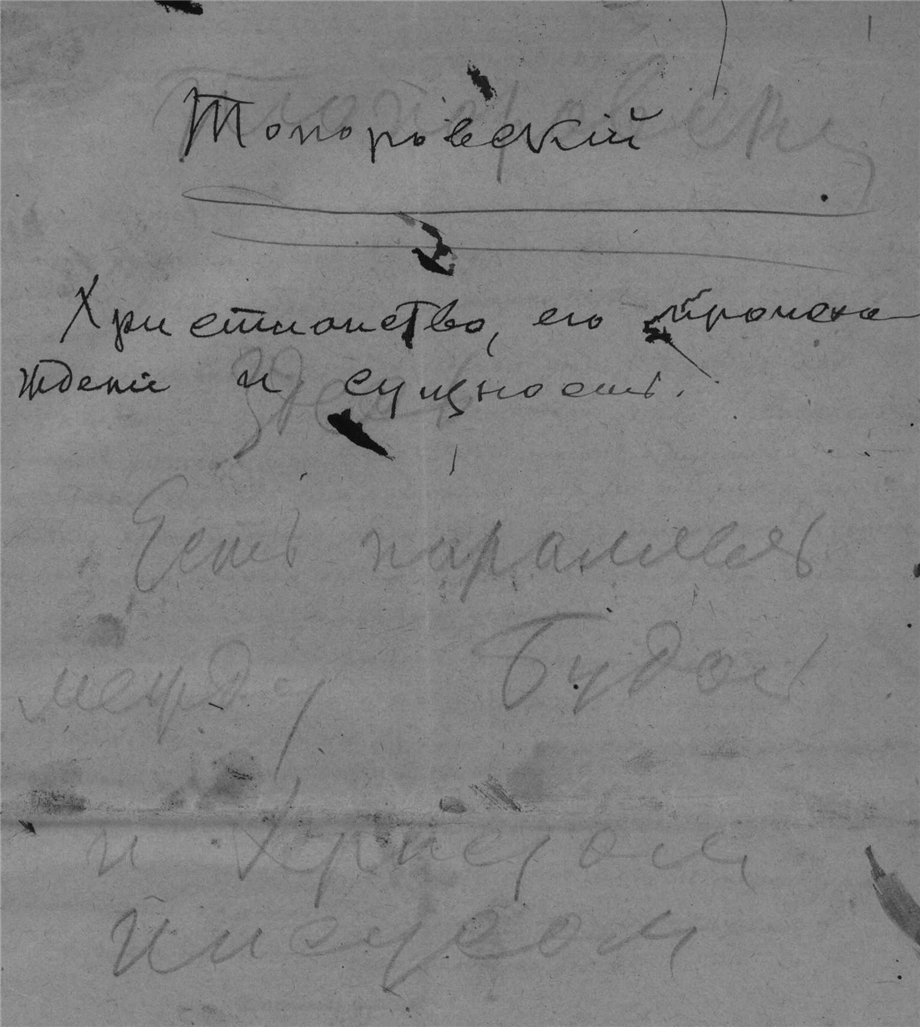 Топоровскій
Христианство, его происхо
жденіе и сущность.
Здесь
Есть параллель
между Будой
и Христом
Иисусом